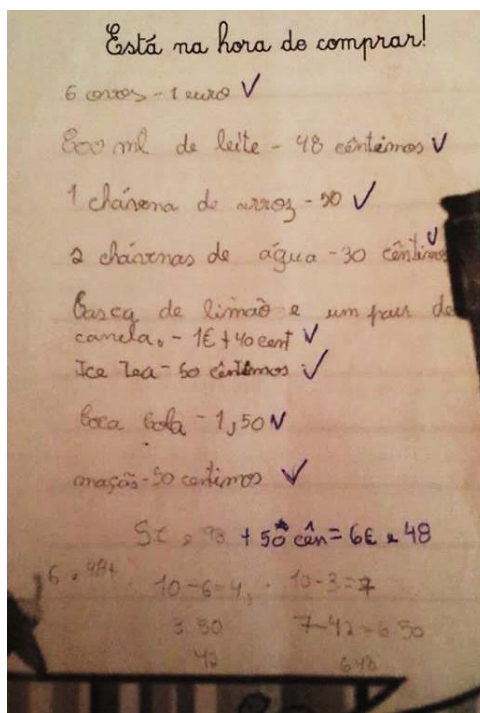 Está na hora de comprar!
6 ovos - 1 euro
800 ml de leite - 48 cêntimos
1 chávena de arroz - 50
2 chávenas de água - 30 cêntimos
Casca de limão e um pau de
canela. - 1€ + 40 cent
Ice Tea - 50 cêntimos
Coca bola - 1,50
maçãs - 50 centimos
5€ e 98 + 50 cên = 6€ e 48
10-6=4, 10-3=7
3.50 7-42=6.50
42 648